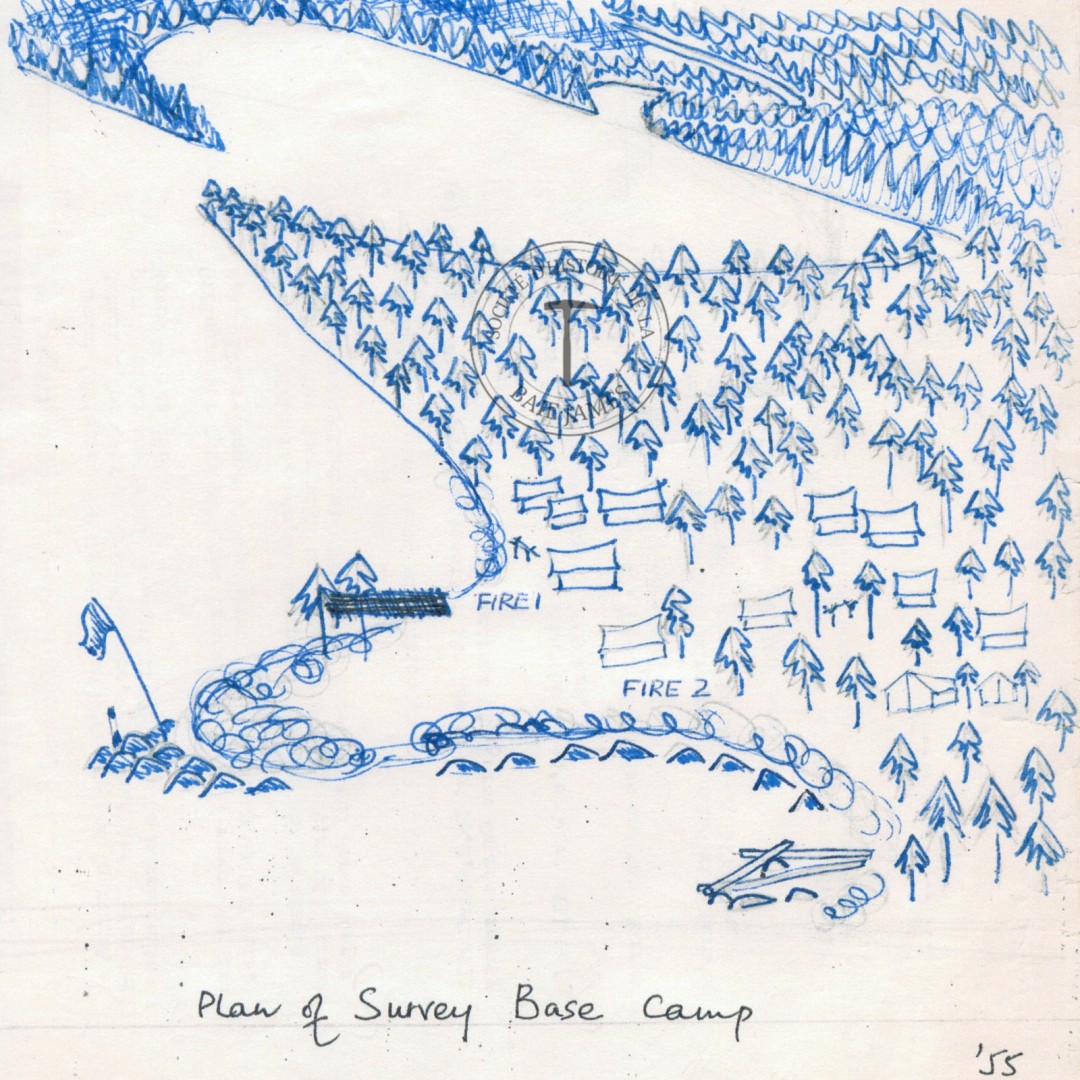 SOCIÉTÉ D'HISTOIRE DE LA
BAIE JAMES
FIRE 1
FIRE 2
Plan of Survey Base Camp
'55